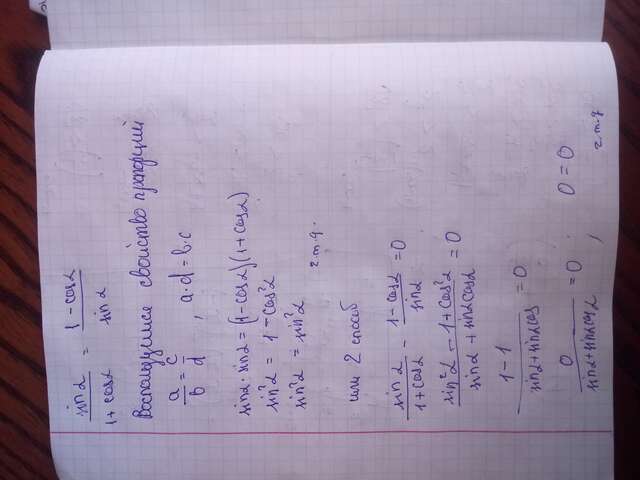 sinα / 1 + cosα = 1 - cosα / sinα
Воспользуемся свойство пропорций
a/b = c/d , a·d = b·c
sinα · sinα = (1 - cosα)(1 + cosα)
sin²α = 1 - cos²α
sin²α = sin²α ч.т.д.
или 2 способ
sinα / 1 + cosα - 1 - cosα / sinα = 0
sin²α - 1 + cos²α / sinα + sinα cosα = 0
1 - 1 / sinα + sinα cos = 0
0 / sinα + sinα cosα = 0 , 0 = 0
ч.т.д